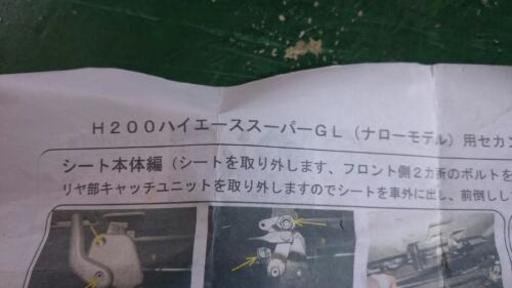 H200ハイエーススーパーGL（ナローモデル）用セカン
シート本体編（シートを取り外します、フロント側2カ所のボルトを
リヤ部キャッチユニットを取り外しますのでシートを車外に出し、前倒しし